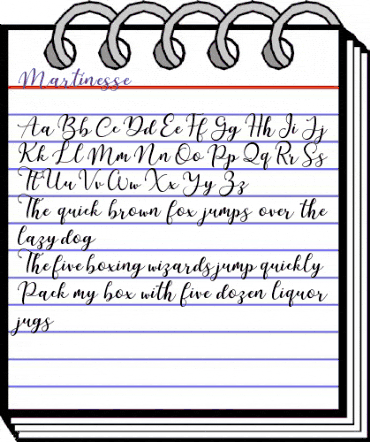 Martinesse
Aa Bb Cc Dd Ee Ff Gg Hh Ii Jj
Kk Ll Mm Nn Oo Pp Qq Rr Ss
Tt Uu Vv Ww Xx Yy Zz
The quick brown fox jumps over the
lazy dog
The five boxing wizards jump quickly
Pack my box with five dozen liquor
jugs